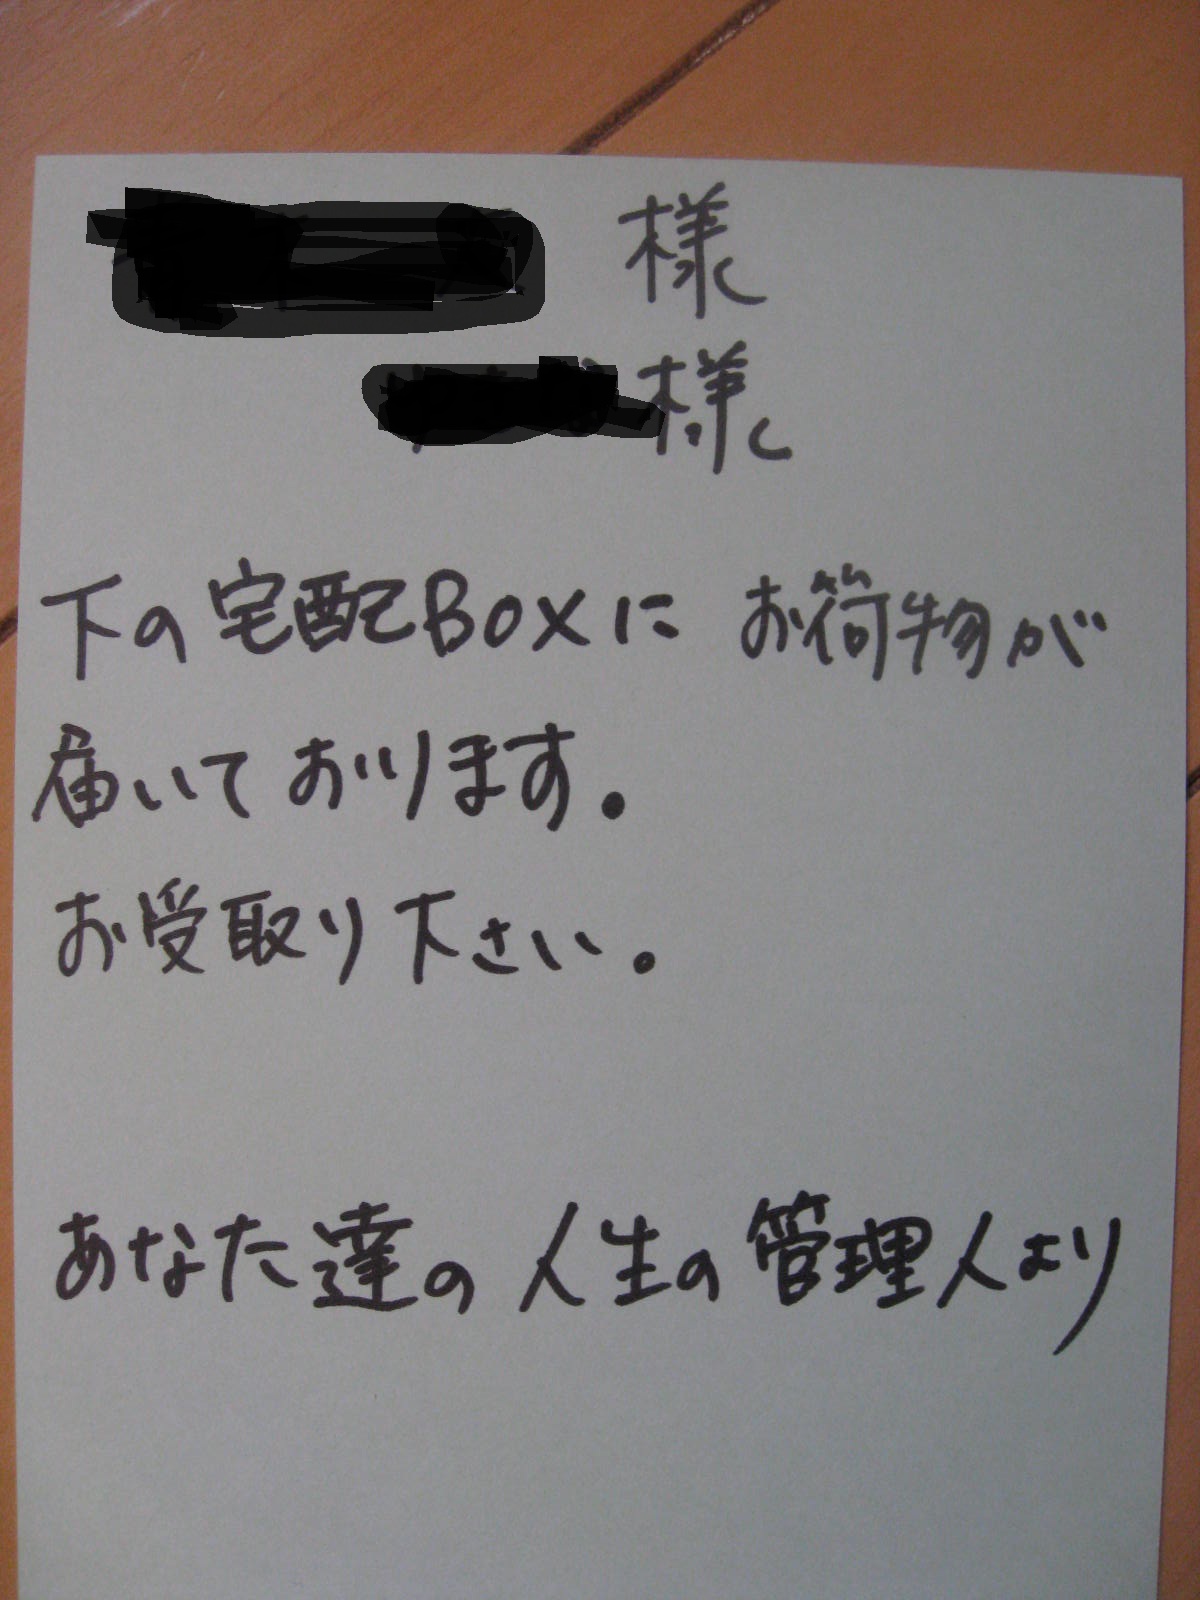 様
様
下の宅配BOXにお荷物が
届いております。
お受取り下さい。
あなた達の人生の管理人より